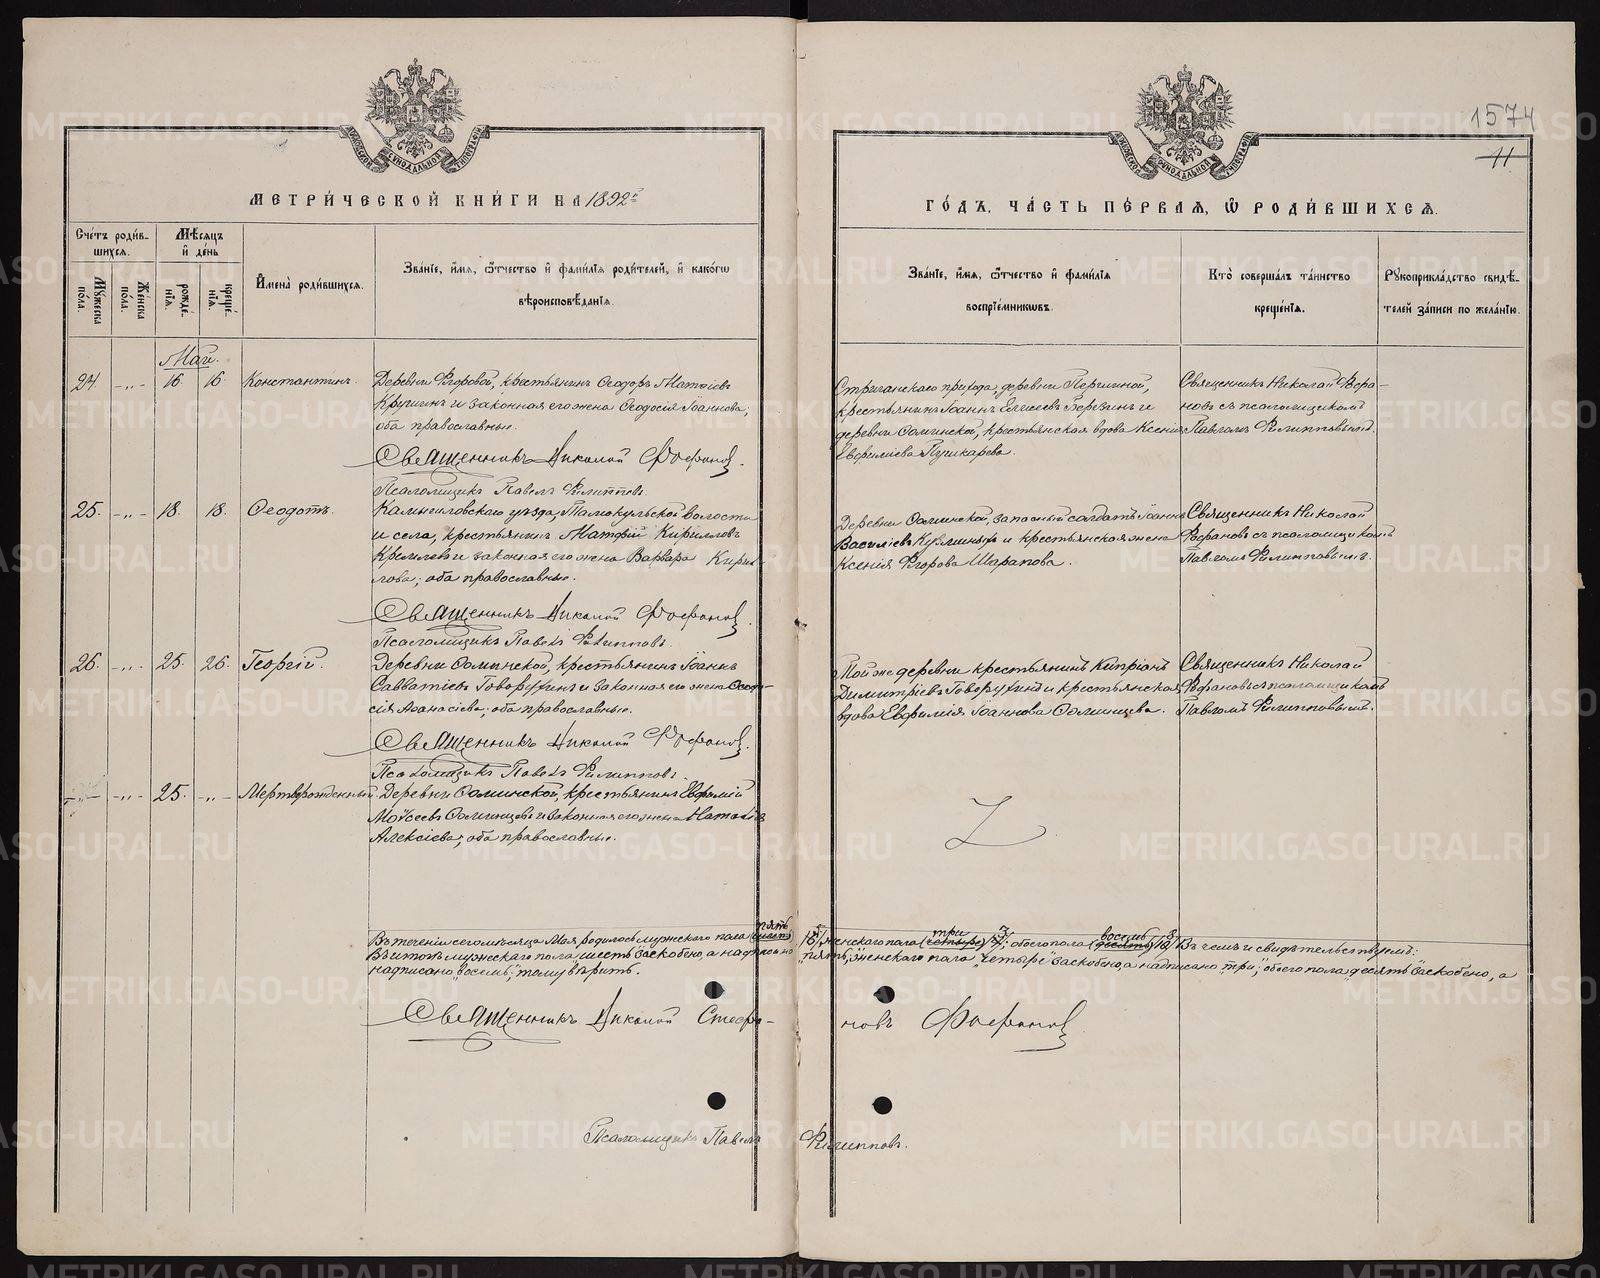 1574
11
МЕТРИ́ЧЕСКОЙ КНИ́ГИ НА 1892 г.
ГО́ДЪ, ЧА́СТЬ ПЕ́РВАЯ, Ѿ РОДИ́ВШИХСЯ.
Сче́тъ роди́в-
шихся.
Му́жеска по́ла.
Же́нска по́ла.
Мѣ́сяцъ и҆ де́нь
рожде́нїя.
креще́нїя.
И҆мена̀ роди́вшихся.
Зва́нїе, и҆́мя, ѻ҆́тчество и҆ фами́лїя роди́телей, и҆ како́гѡ
вѣроисповѣ́данїя.
Зва́нїе, и҆́мя, ѻ҆́тчество и҆ фами́лїя
воспрїе́мникѡвъ.
Кто̀ соверша́лъ та́инство
креще́нїя.
Рꙋкоприкла́дство свидѣ́-
телей за́писи по жела́нїю.
Май.
24. -„- 16. 16. Константинъ.
Деревни Ѳгоровой, крестьянинъ Ѳеодоръ Матѳіевъ
и законная его жена Ѳеодосія Іоаннова;
оба православные.
Священникъ Николай Фофановъ.
Псаломщикъ Павелъ Филипповъ.
Стриганскаго прихода, деревни Першиной,
крестьянинъ Іоаннъ Елисеевъ Березинъ и
деревни Ѳоминской, крестьянская вдова Ксенія
Евфиміева Пушкарева.
Священникъ Николай Фофа-
новъ съ псаломщикомъ
Павломъ Филипповымъ.
25. -„- 18. 18. Ѳеодотъ.
Камышловскаго уѣзда, Тамакульской волости
и села, крестьянинъ Матфій Кирилловъ
и законная его жена Варвара Кирил-
лова; оба православные.
Священникъ Николай Фофановъ.
Псаломщикъ Павелъ Филипповъ.
Деревни Ѳоминской, запасный солдатъ Іоаннъ
Василіевъ и крестьянская жена
Ксенія Ѳгорова Шарапова.
Священникъ Николай
Фофановъ съ псаломщикомъ
Павломъ Филипповымъ.
26. -„- 25. 26. Георгій.
Деревни Ѳоминской, крестьянинъ Іоаннъ
Савватіевъ Говорухинъ и законная его жена Ѳеодо-
сія Аѳанасіева; оба православные.
Священникъ Николай Фофановъ.
Псаломщикъ Павелъ Филипповъ.
Той же деревни крестьянинъ Кипріанъ
Димитріевъ Говорухинъ и крестьянская
вдова Евфимія Іоаннова Ѳоминцева.
Священникъ Николай
Фофановъ съ псаломщикомъ
Павломъ Филипповымъ.
-„- 25. -„- Мертворожденный.
Деревни Ѳоминской, крестьянинъ Евфимій
Мойсеевъ Ѳоминцевъ и законная его жена Наталія
Алексіева; оба православные.
Въ теченіи сего мѣсяца Мая родилось мужескаго пола пять (шесть) 5 /6/, женскаго пола три (четыре) 3 /4/; обоего пола восемь (десять) 8 /10/ Въ чемъ и свидѣтельствуемъ.
Въ итогѣ мужескаго пола „шесть“ заскоблено, а надписано „пять“, женскаго пола „четыре“ заскоблено, а надписано „три“; обоего пола „десять“ заскоблено, а
надписано „восемь“, тому вѣрить.
Священникъ Николай Стефа-
новъ Фофановъ.
Псаломщикъ Павелъ Филипповъ.
METRIKI.GASO-URAL.RU